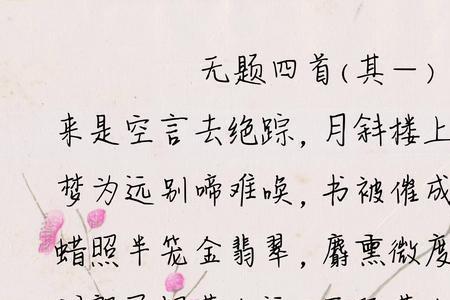 无题四首(其一)
来是空言去绝踪,月斜楼上
梦为远别啼难唤,书被催成
蜡照半笼金翡翠,麝熏微度